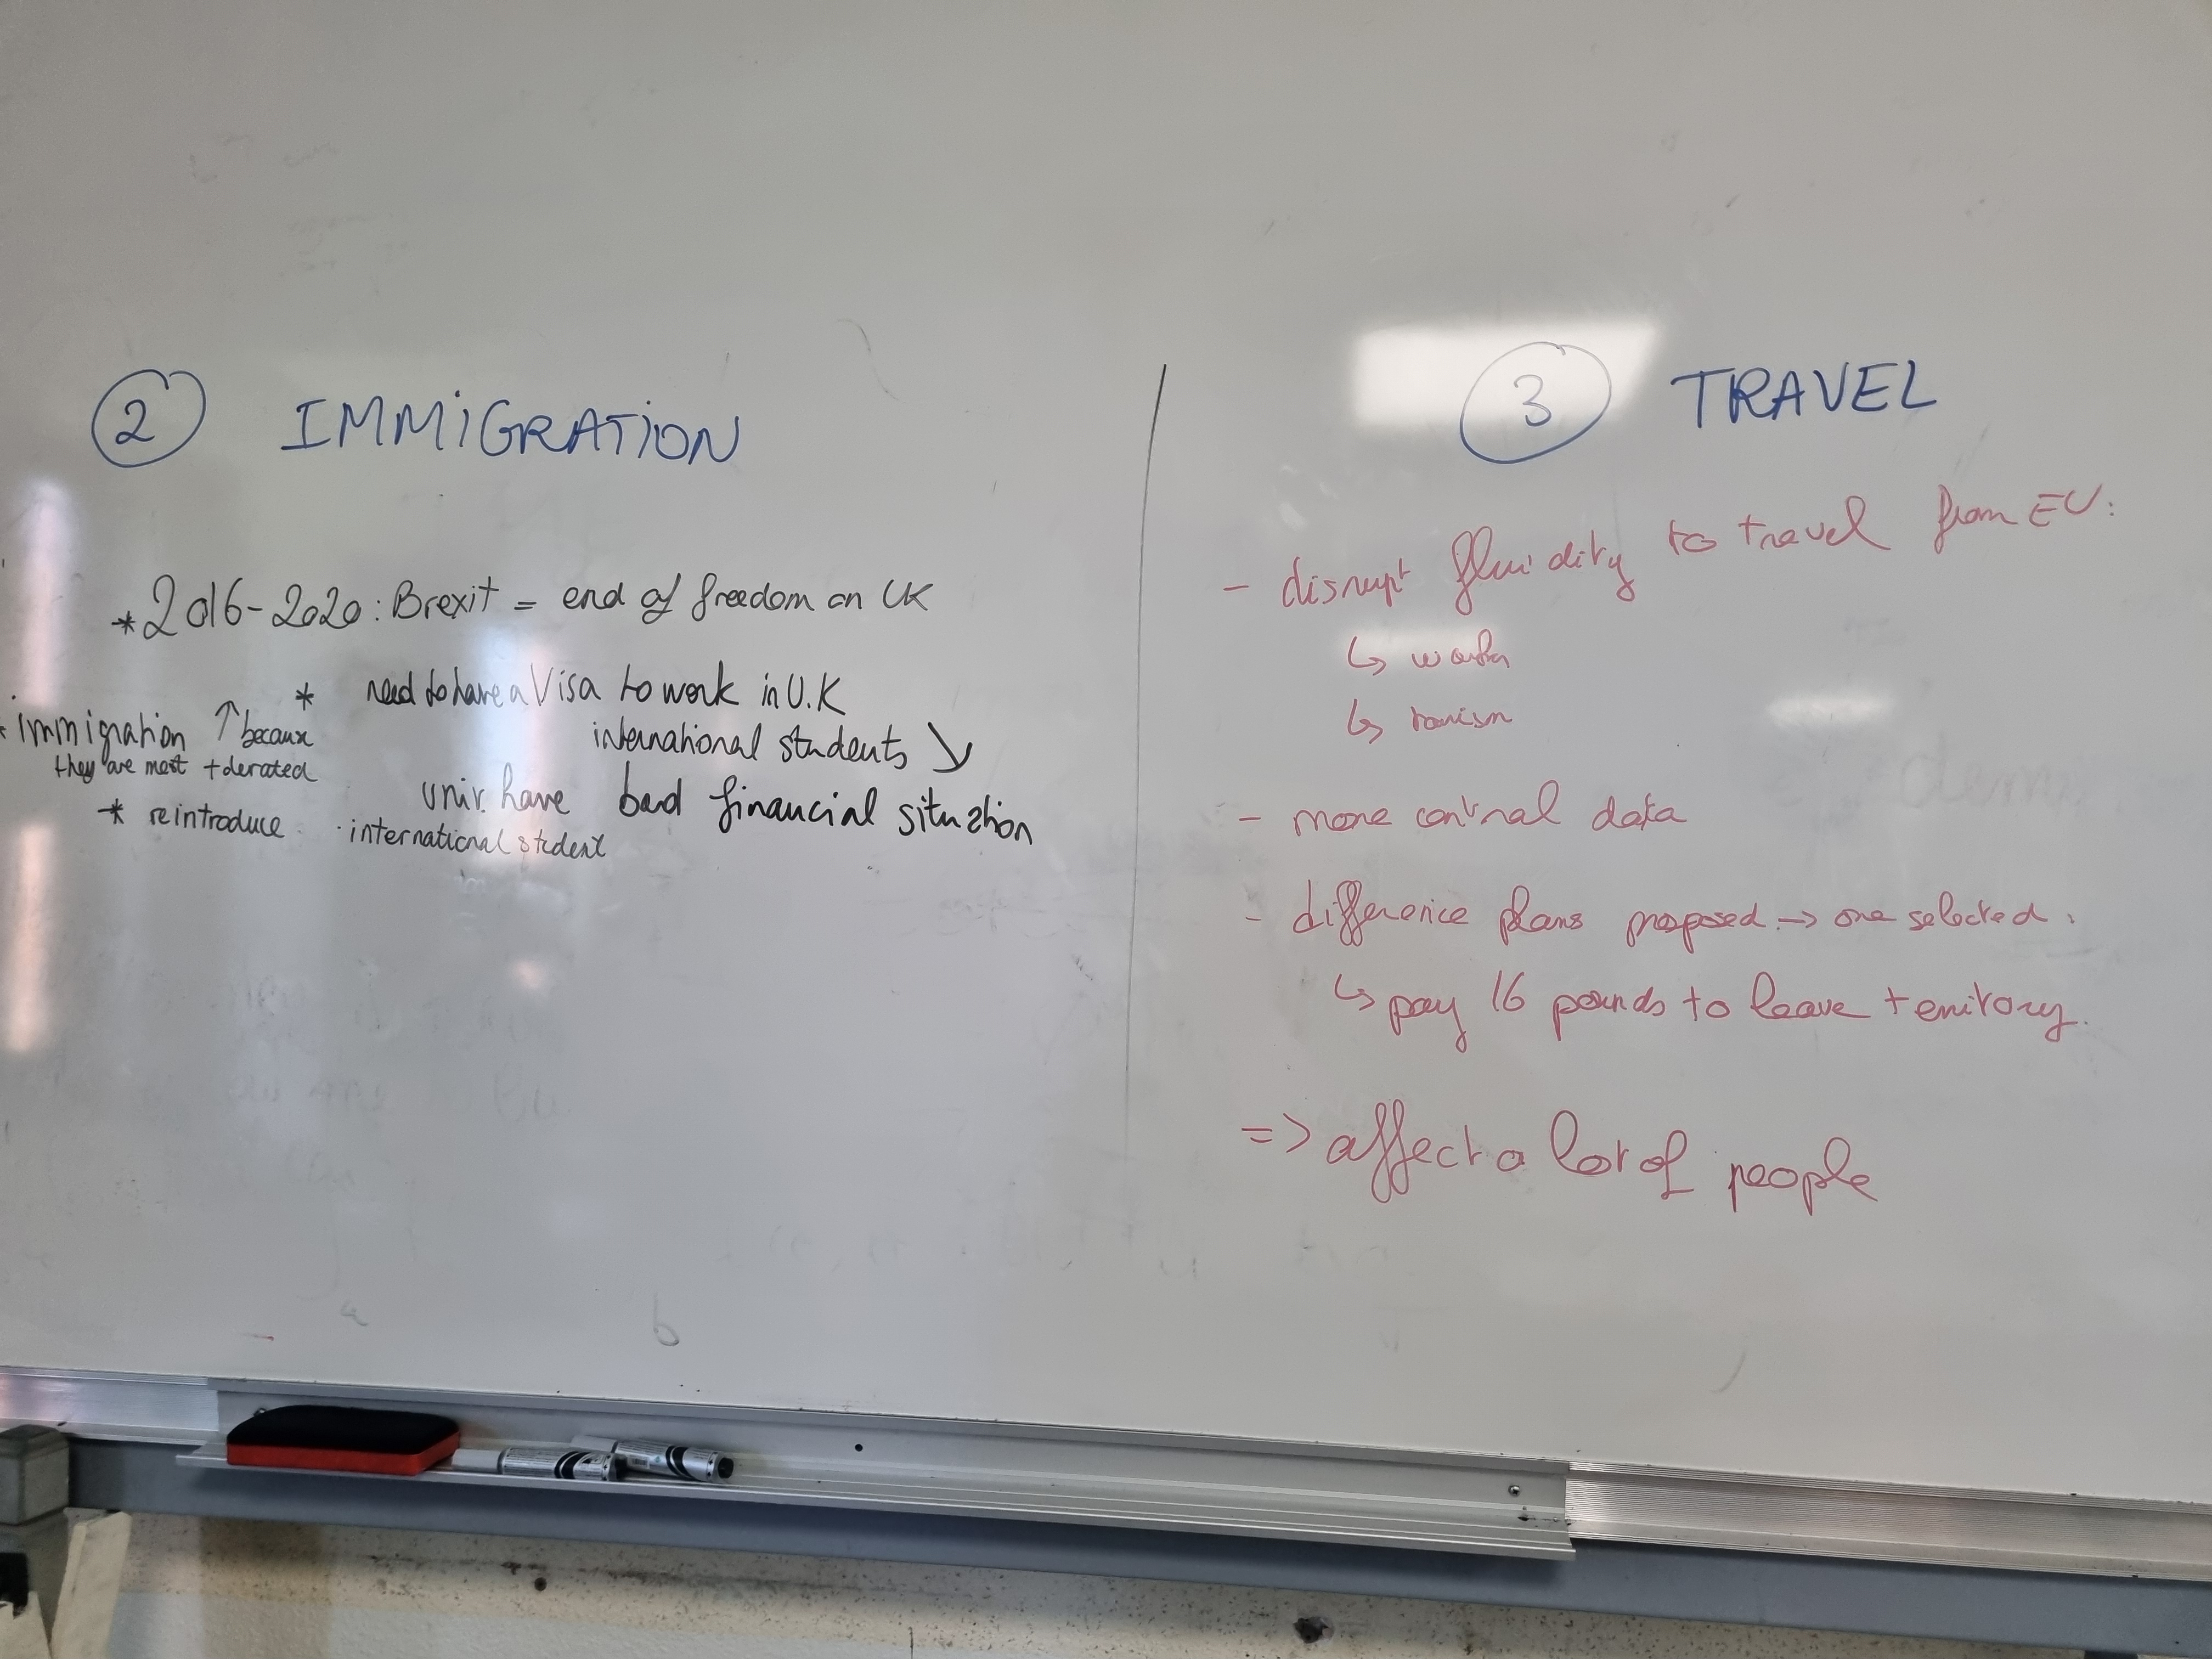 2 IMMiGRATiON
*2016-2020: Brexit = end of freedom on UK
* need to have a Visa to work in U.K
international students ↘
* immigration ↑ because
they are most + derated
univ. have bad financial situation
* reintroduce international student
3 TRAVEL
- disrupt fluidity to travel from EU:
↳ worker
↳ tourism
- more control data
- difference plans proposed → one selected:
↳ pay 16 pounds to leave territory.
=> affect a lot of people